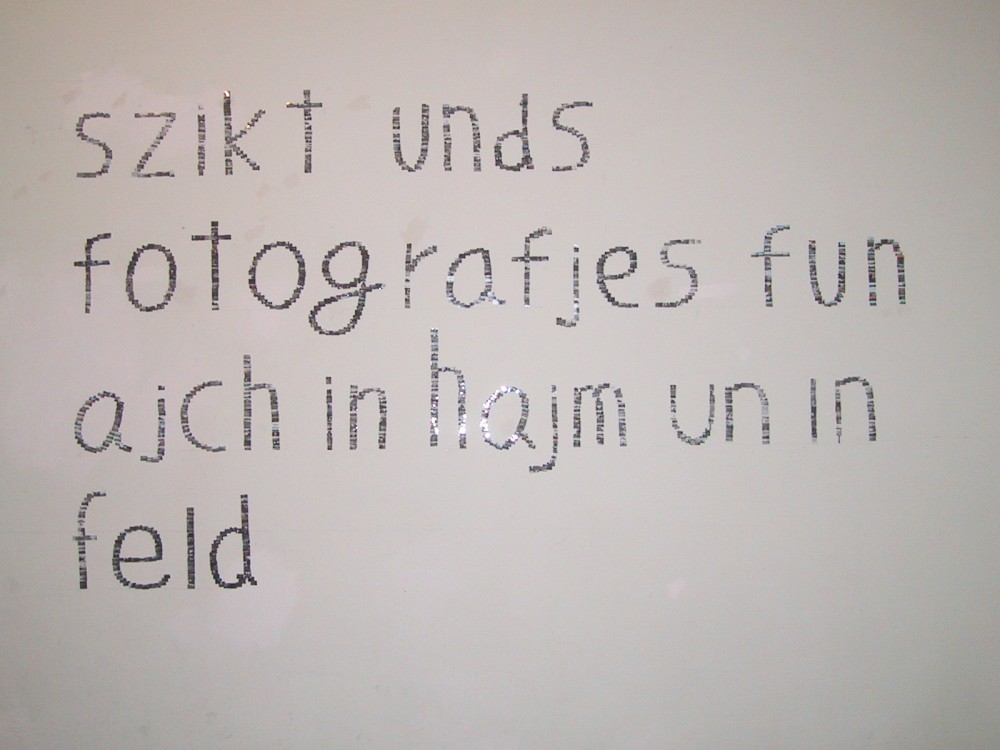 szikt unds
fotografjes fun
ajch in hajm un in
feld